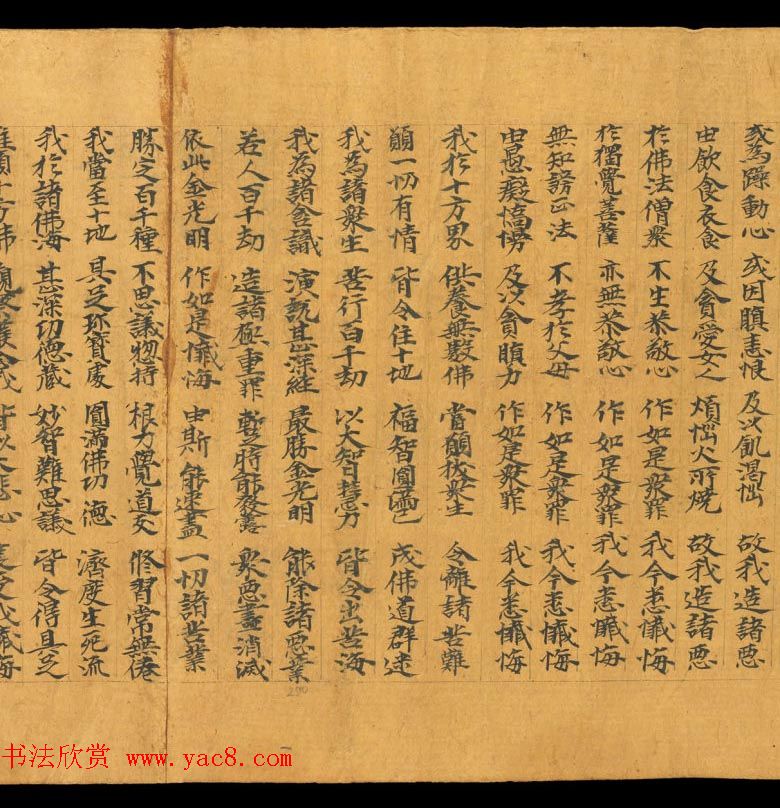 或為躁動心 或因瞋恚恨 及以飢渴惱 故我造諸惡
由飲食衣食 及貪愛女人 煩惱火所燒 故我造諸惡
於佛法僧眾 不生恭敬心 作如是眾罪 我今悉懺悔
於獨覺菩薩 亦無恭敬心 作如是眾罪 我今悉懺悔
無知謗正法 不孝於父母 作如是眾罪 我今悉懺悔
由愚癡憍慢 及以貪瞋力 作如是眾罪 我今悉懺悔
我於十方界 供養無數佛 當願拔眾生 令離諸苦難
願一切有情 皆令住十地 福智圓滿已 成佛道群迷
我為諸眾生 苦行百千劫 以大智慧力 皆令出苦海
我為諸含識 演說甚深經 最勝金光明 能除諸惡業
若人百千劫 造諸極重罪 暫時能發露 眾惡盡消滅
依此金光明 作如是懺悔 由斯能速盡 一切諸苦業
勝定百千種 不思議惣持 根力覺道支 修習常無倦
我當至十地 具足珍寶處 圓滿佛功德 濟度生死流
我於諸佛海 甚深功德藏 妙智難思議 皆令得具足
唯願十方佛 皆以大悲心 懺悔
书法欣赏 www.yac8.com